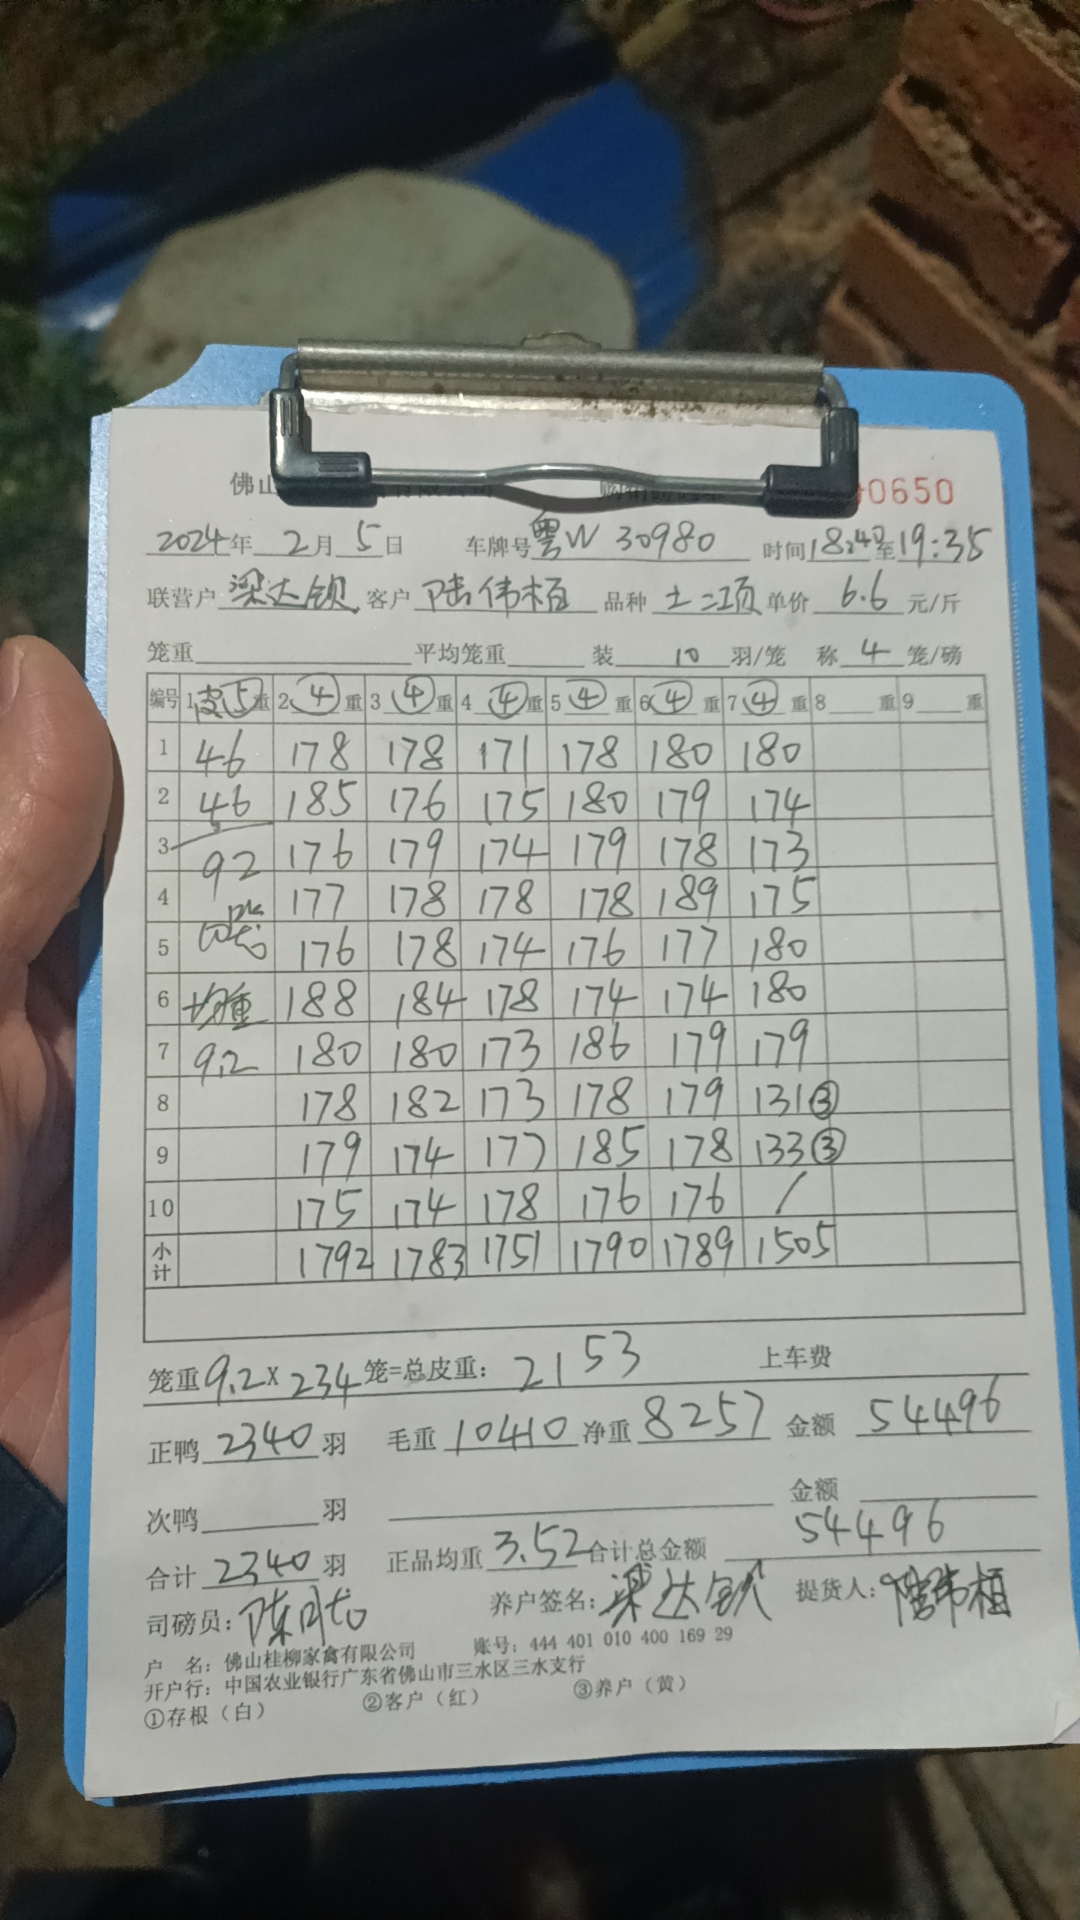 佛山
0650
2024年 2月 5日 车牌号 粤W 30980 时间 18:40至19:35
联营户 梁达锁 客户 陆伟栢 品种 土二项 单价 6.6 元/斤
笼重 平均笼重 装 10 羽/笼 称 4 笼/磅
编号 1 皮⑤重 2 ④重 3 ④重 4 ④重 5 ④重 6 ④重 7 ④重 8 重 9 重
1 46 178 178 171 178 180 180
2 46 185 176 175 180 179 174
3 92 176 179 174 179 178 173
4 177 178 178 178 189 175
5 176 178 174 176 177 180
6 均重 188 184 178 174 174 180
7 9.2 180 180 173 186 179 179
8 178 182 173 178 179 131③
9 179 174 177 185 178 133③
10 175 174 178 176 176 /
小计 1792 1783 1751 1790 1789 1505
笼重 9.2 x 234 笼=总皮重: 2153 上车费
正鸭 2340 羽 毛重 10410 净重 8257 金额 54496
次鸭 羽 金额
合计 2340 羽 正品均重 3.52 合计总金额 54496
司磅员: 陈 养户签名: 梁达 提货人: 陆伟栢
户 名: 佛山桂柳家禽有限公司 账号: 444 401 010 400 169 29
开户行: 中国农业银行广东省佛山市三水区三水支行
①存根（白） ②客户（红） ③养户（黄）